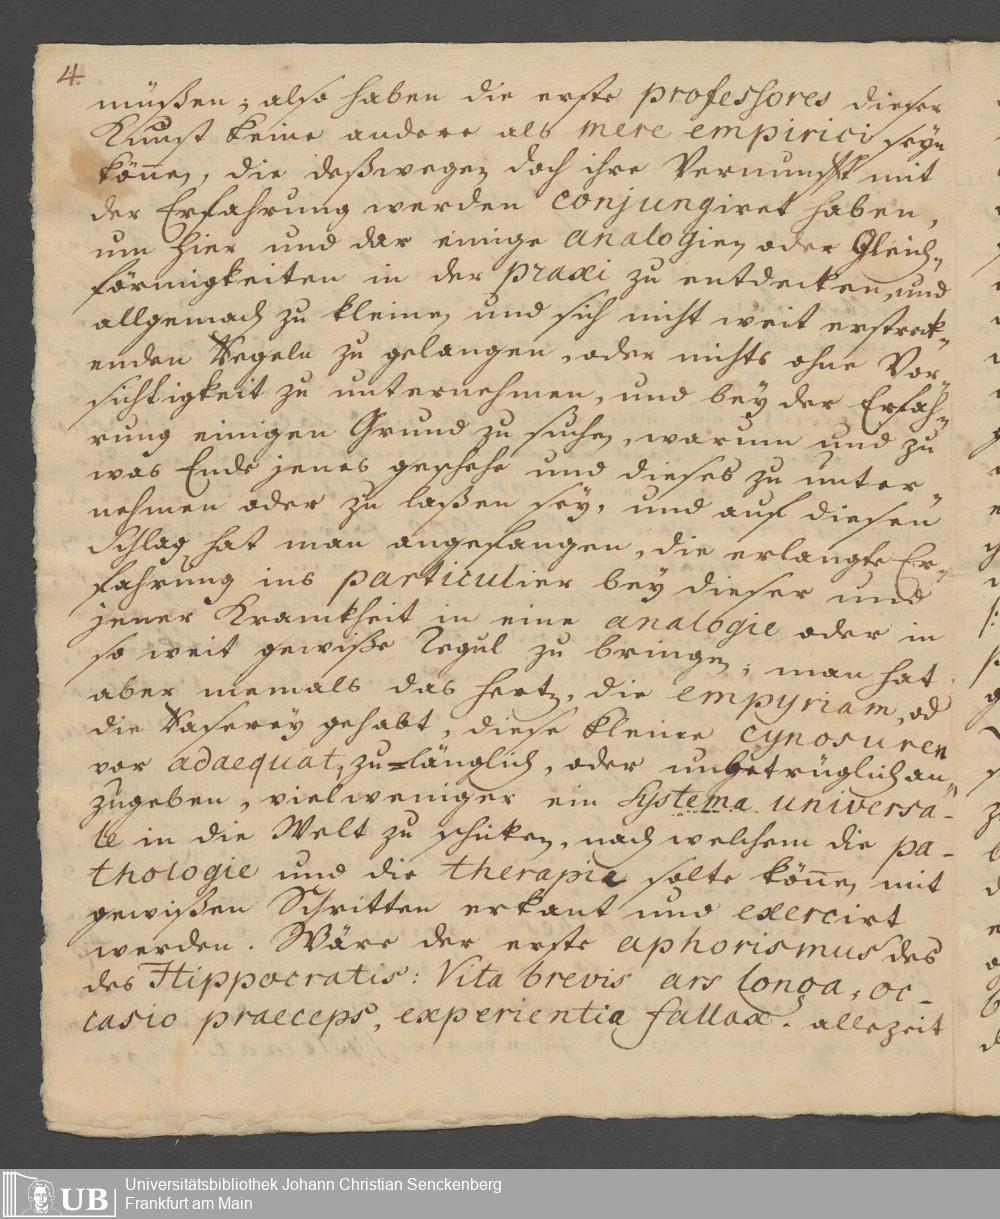 4.
müßen; also haben die erste professores dieser
Kunst keine andere als mere empirici seyn
könen, die deßwegen doch ihre Vernunfft mit
der Erfahrung werden conjungiret haben,
um hier und dar einige analogien oder Gleich-
förmigkeiten in der praxi zu entdecken, und
allgemach zu kleinen, und sich nicht weit erstreck-
enden Regeln zu gelangen, oder nichts ohne Vor-
sichtigkeit zu unternehmen, und bey der Erfah-
rung einigen Grund zu suchen, warum und zu
was Ende jenes geschehe und dieses zu unter-
nehmen oder zu laßen sey, und auf diesen
Schlag hat man angefangen, die erlangte Er-
fahrung ins particulier bey dieser und
jener Krankheit in eine analogie oder in
so weit gewiße Regul zu bringen; man hat
aber niemals das hertz, die empyriam, od
die Raserey gehabt, diese kleine cynosuren
vor adaequat, zu-länglich, oder unbetrüglich an-
zugeben, vielweniger ein Systema universa-
le in die Welt zu schicken, nach welchem die pa-
thologie und die therapie solte könen mit
gewißen Schritten erkant und exercirt
werden. Wäre der erste aphorismus des
des Hippocratis: Vita brevis ars longa, oc-
casio praeceps, experientia fallax. allezeit
Universitätsbibliothek Johann Christian Senckenberg
UB Frankfurt am Main